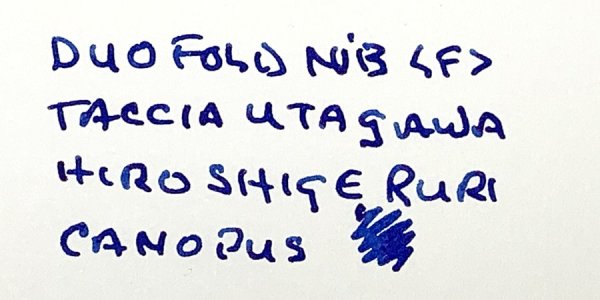 DUOFOLD NIB <F>
TACCIA UTAGAWA
HIROSHIGE RURI
CANOPUS